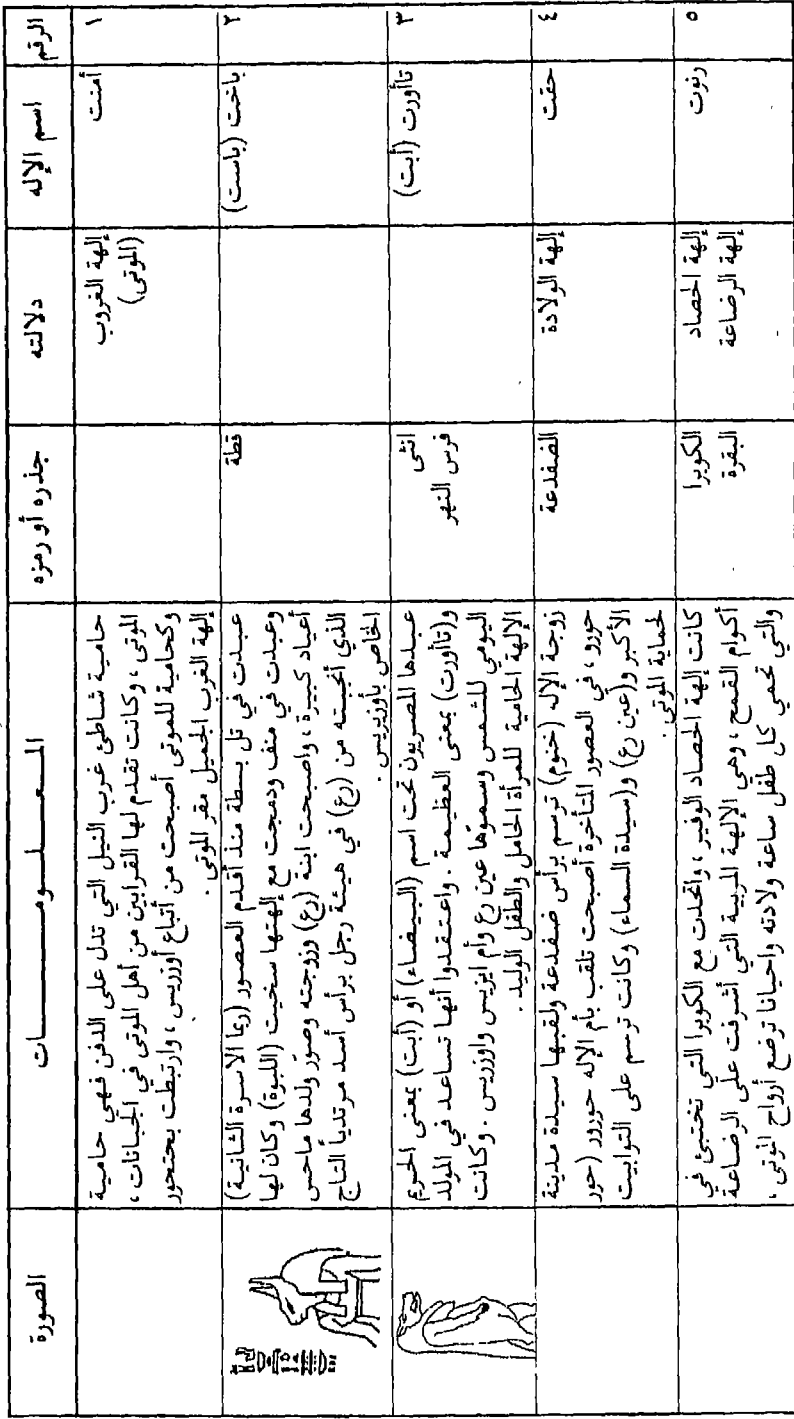 الرقم
اسم الإله
دلالته
جذره أو رمزه
المعلومات
الصورة
١
أمنت
إلهة الغروب
(الموتى)
حامية شاطئ غرب النيل التي تدل على الدفن فهي حامية
الموتى ، وكانت تقدم لها القرابين من أهل الموتى في الجبانات ،
وكحامية للموتى أصبحت من أتباع أوزريس ، وارتبطت بحتحور
إلهة الغرب الجميل مقر الموتى .
٢
باخت (باست)
قطة
عبدت في تل بسطة منذ أقدم العصور (ربما الاسرة الثانية)
وعبدت في منف ودمجت مع إلهتها سخيت (اللبوة) وكان لها
أعياد كبيرة ، واصبحت ابنة (رع) وزوجته وصور ولدها ماحس
الذي أنجبته من (رع) في هيئة رجل برأس أسد مرتدياً التاج
الخاص بأوزيريس .
٣
تاأورت (أبت)
انثى
فرس النهر
عبدها المصريون تحت اسم (البيضاء) أو (أبت) بمعنى الحريم
و(تاأورت) بمعنى العظيمة . واعتقدوا أنها تساعد في المولد
اليومي للشمس وسموها عين رع وأم ايزيس واوزريس . وكانت
الإلهة الحامية للمرأة الحامل والطفل الوليد .
٤
حقت
إلهة الولادة
الضفدعة
زوجة الإله (خنوم) ترسم برأس ضفدعة ولقبها سيدة مدينة
حورو ، في العصور المتأخرة أصبحت تلقب بأم الإله حورور (حور
الأكبر و(عين رع) و(سيدة السماء) وكانت ترسم على التوابيت
لحماية الموتى .
٥
رنوت
إلهة الحصاد
إلهة الرضاعة
الكوبرا
البقرة
كانت إلهة الحصاد الوفير ، واتحدت مع الكوبرا التي تختبئ في
أكوام القمح ، وهي الإلهة المربية التي أشرفت على الرضاعة
والتي تحمي كل طفل ساعة ولادته واحيانا ترضع أرواح الموتى .